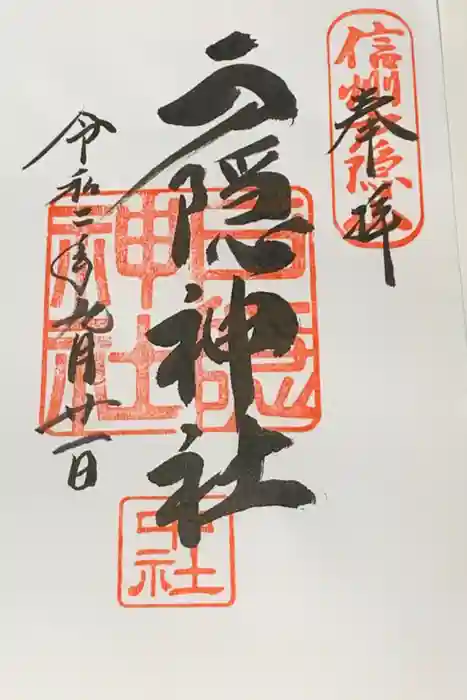 信州戸隠
奉拝
戸隠神社
戸隠神社
中社
令和二年九月廿一日